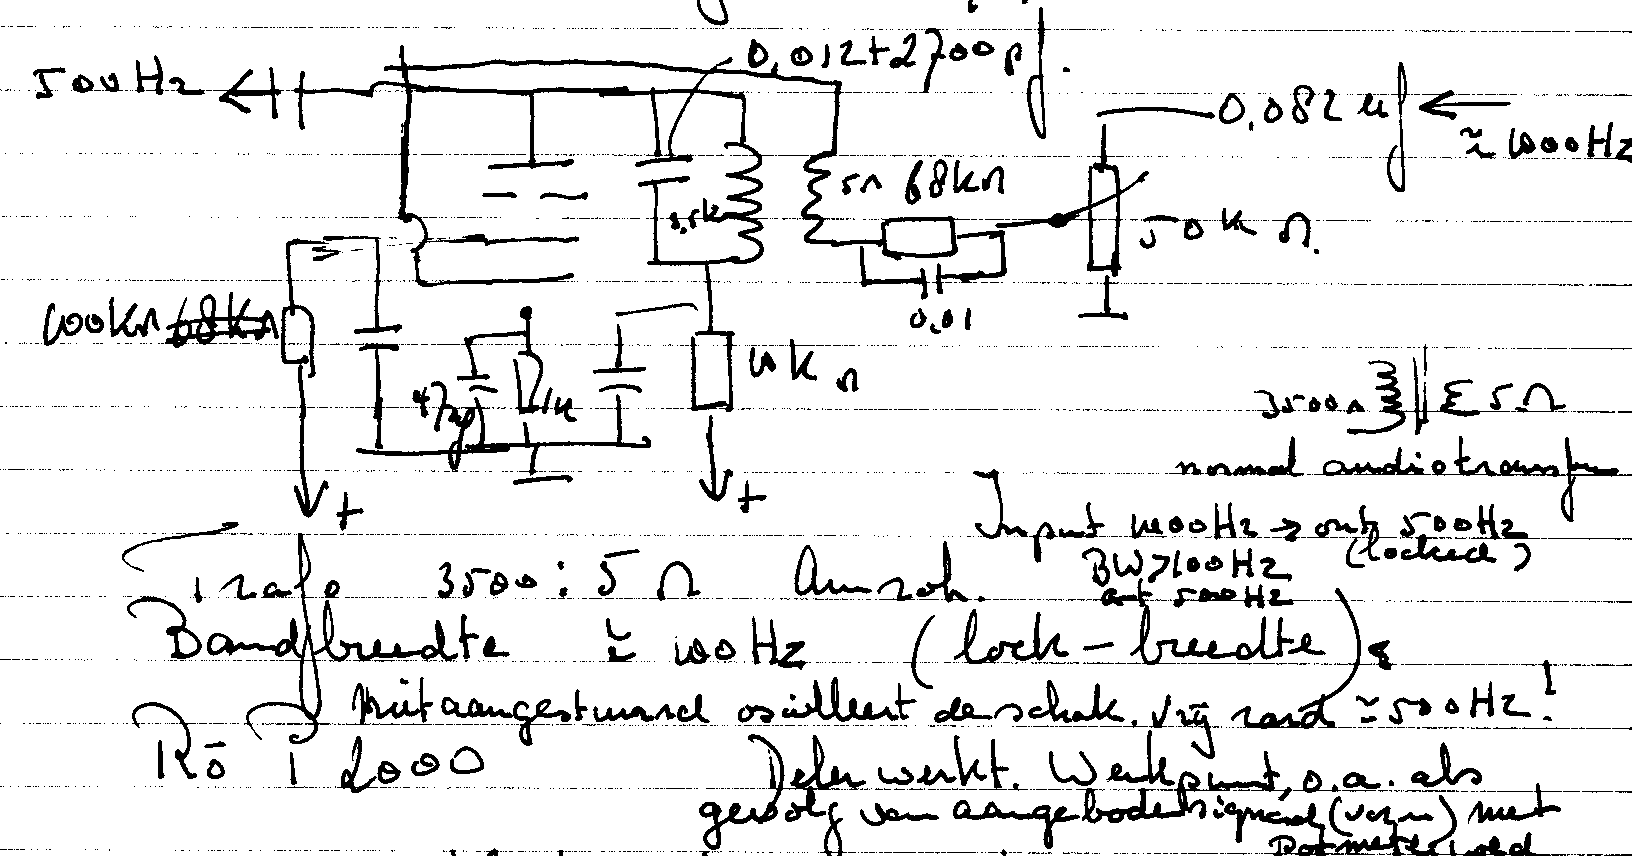 0,012+2700pf.
500Hz
0,082 uf
≈ 1000Hz
5Ω 68kΩ
3,5k
50KΩ.
0,01
100KΩ 68KΩ
47uf
1K
10KΩ
3500Ω 5Ω
normal audiotransf
+ +
Input 1000Hz → out 500Hz
(locked)
BW>100Hz
at 500Hz
Trafo 3500:5Ω Aanroh.
Bandbreedte ≈ 100Hz (lock-breedte)
Niet aangestuurd oscilleert de schak. vrij rond ≈500Hz!
Rö P 2000
Deler werkt. Werkpunt, o.a. als
gevolg van aangeboden signaal (vorm) met
Potmeter